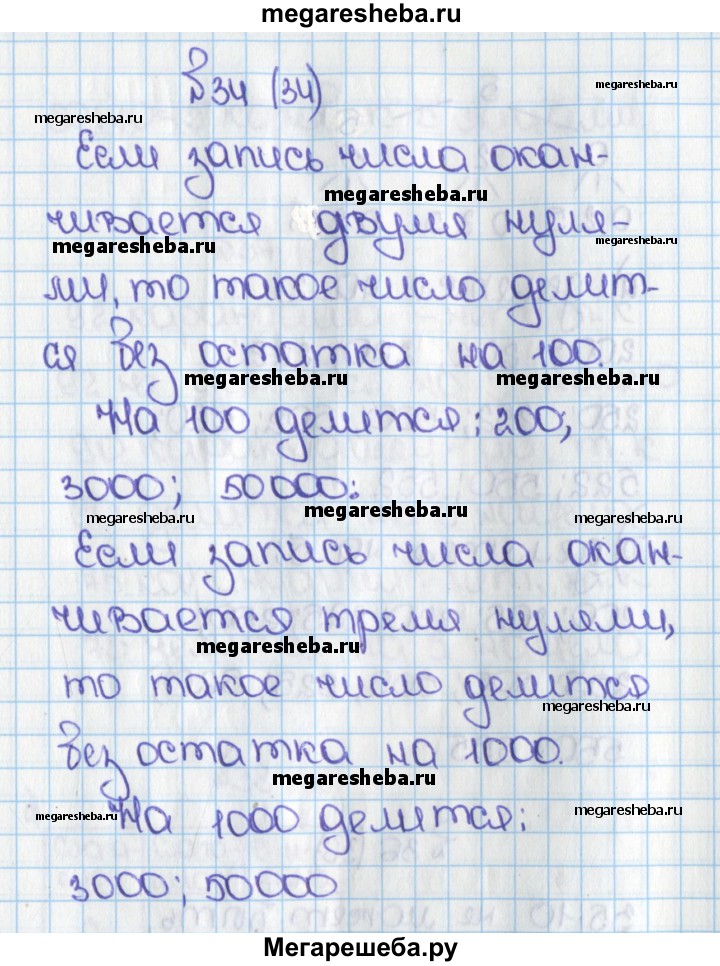 megaresheba.ru
№34 (34)
megaresheba.ru
megaresheba.ru
Если запись числа окан-
megaresheba.ru
чивается двумя нуля-
megaresheba.ru
megaresheba.ru
ми, то такое число делит-
ся без остатка на 100.
megaresheba.ru
megaresheba.ru
На 100 делится: 200,
3000; 50000.
megaresheba.ru
megaresheba.ru
megaresheba.ru
Если запись числа окан-
чивается тремя нулями,
megaresheba.ru
megaresheba.ru
то такое число делится
megaresheba.ru
без остатка на 1000.
megaresheba.ru
На 1000 делится:
megaresheba.ru
megaresheba.ru
3000; 50000
Мегарешеба.ру